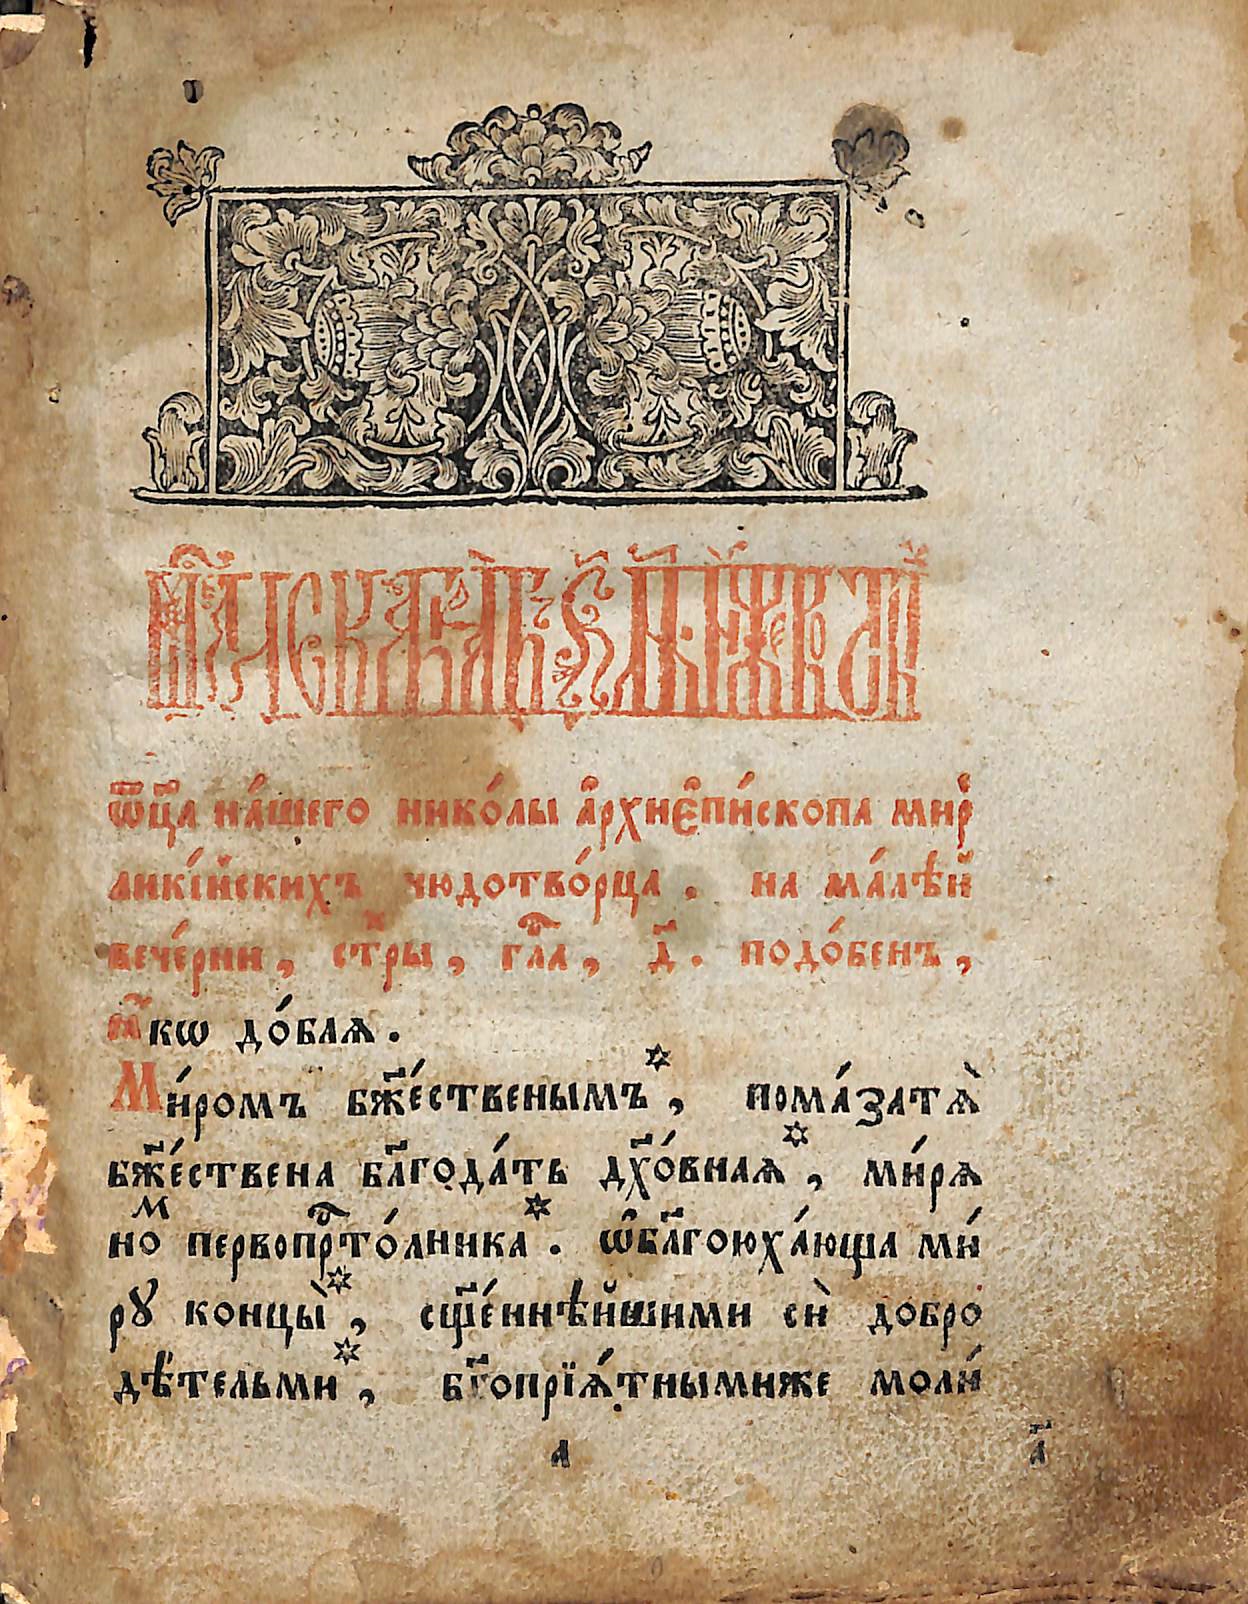 мⷭ҇ца декабрѧ въ ѕ҃ д҃нь. и҆же во ст҃ы́хъ
ѿц҃а на́шего нико́лы а҆рхиє҆пи́скопа мирꙿ
ликі́йскихъ чюдотво́рца. на ма́лѣй
вече́рни, стⷯры, гла҃, д҃. подо́бенъ,
ꙗ҆́кѡ до́блѧ.
Ми́ромъ бж҃е́ственымъ*, пома́затѧ̀
бж҃е́ствена блг҃ода́ть дх҃о́внаѧ*, ми́рѧ
но первопрⷭ҇то́лника*. ѡ҆блг҃оюха́юща ми́
ру концы̀*, сщ҃е́ннѣйшими сѝ добро
дѣ́тельми*, бг҃опрїѧ́тнымиже моли́
а
а҃